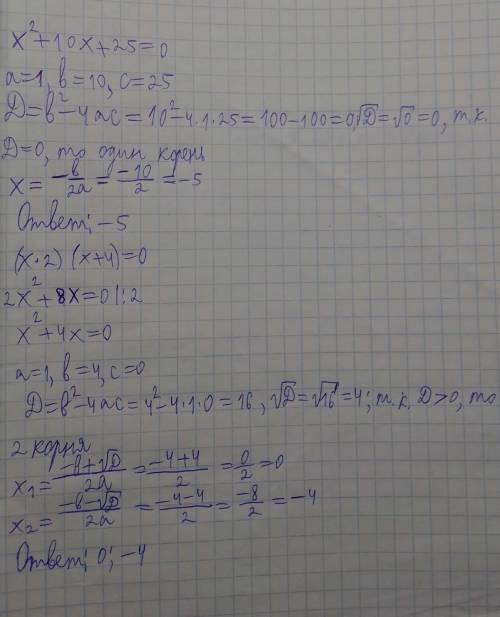 x²+10x+25=0
a=1, b=10, c=25
D=b²-4ac=10²-4·1·25=100-100=0, √D=√0=0, т.к.
D=0, то один корень
x= -b/2a = -10/2 = -5
Ответ: -5
(x·2) (x+4)=0
2x²+8x=0 |:2
x²+4x=0
a=1, b=4, c=0
D=b²-4ac=4²-4·1·0=16, √D=√16=4; т.к. D>0, то
2 корня
x₁= -b+√D/2a = -4+4/2 = 0/2 = 0
x₂= -b-√D/2a = -4-4/2 = -8/2 = -4
Ответ: 0; -4